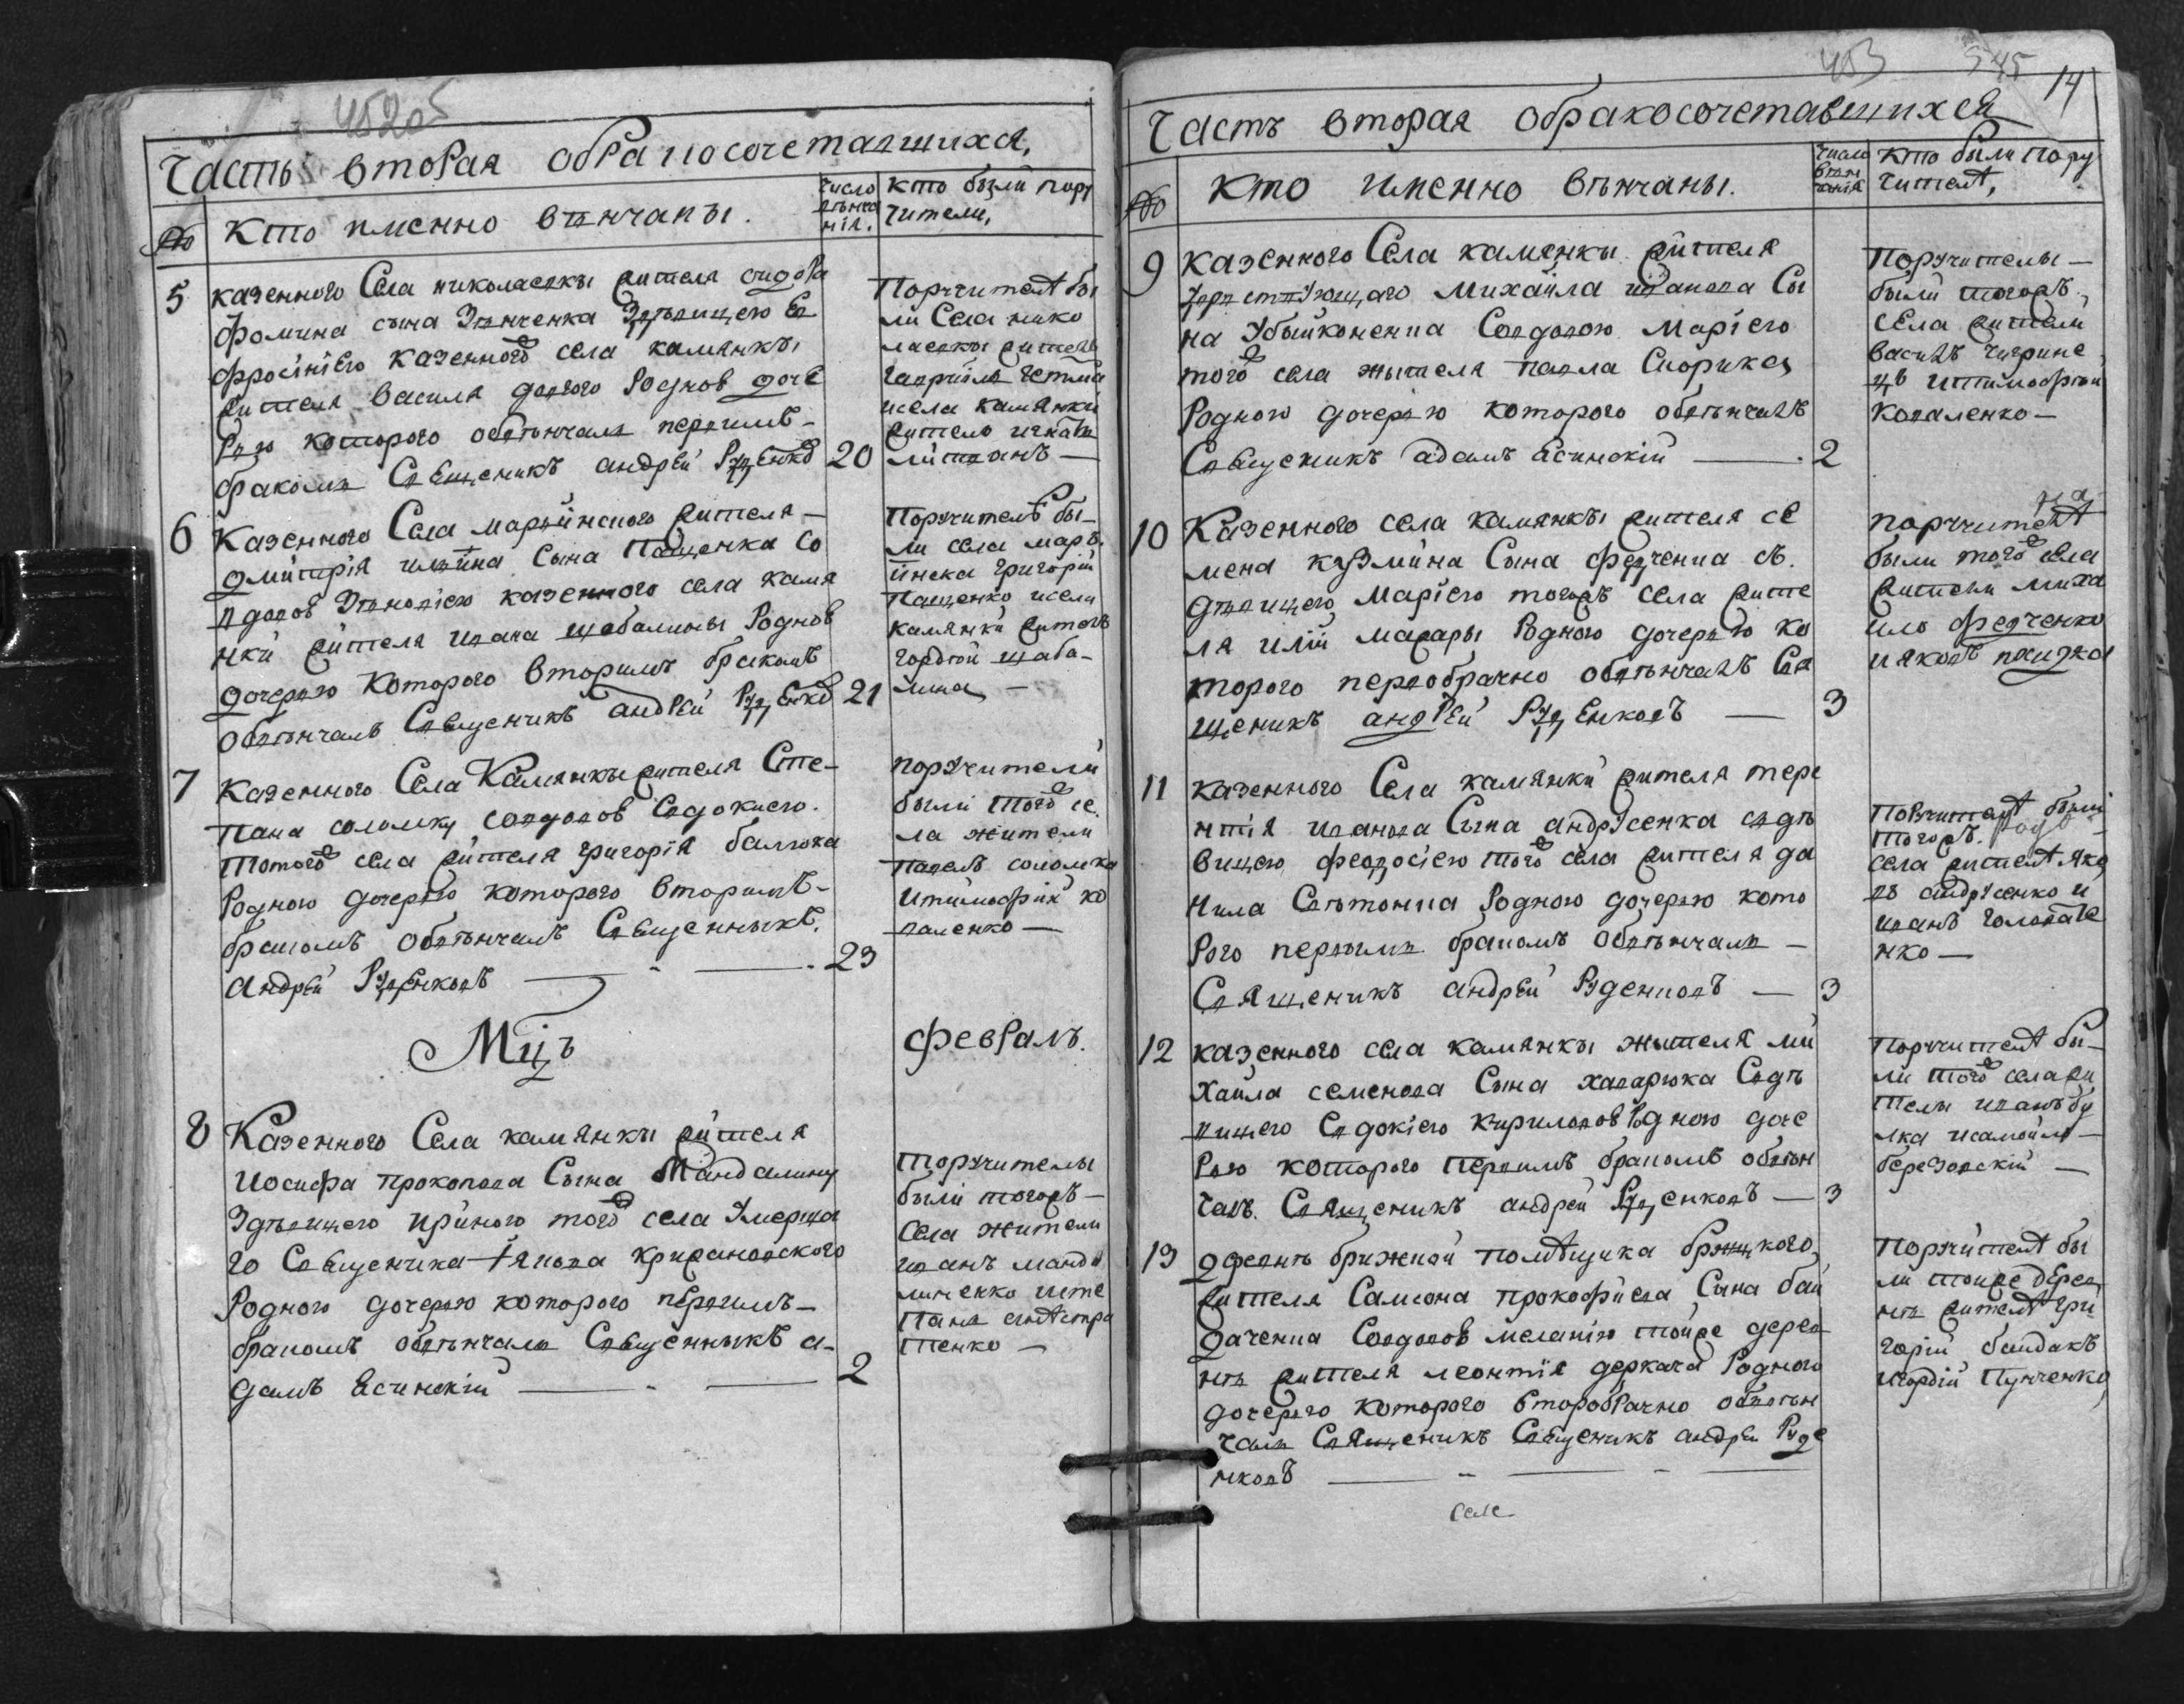 452об
Часть вторая обракосочетавшихся,
№ Кто именно вѣнчаны. число вѣнча нія. кто были пору чители,
5 казенного Села николаевки жителя сидора
фомина сына Зѣнченка Здѣвицею Ев
фросініею казенного села камянкы
жителя василя довгого Роднов доче
Рью которого обвѣнчалъ первимъ
бракомъ Свещеникъ андрей Руденков 20
Поручителѣ бы
ли Села нико
лаевкы жители
гавріилъ четма
исела камянки
житель игнатъ
литванъ —
6 Казенного Села марьинского жителя —
дмитрія ильина Сына Пащенка со
вдовов Зѣновіею казенного села камя
нки жителя ивана шабалины Роднов
дочерью Которого вторимъ бракомъ
обвѣнчалъ Свещеникъ андрей Руденков 21
Поручителѣ бы-
ли села марь
инска григорій
Пащенко исела
камянки житель
гордѣй шаба-
лина —
7 Казенного Села Камянкы жителя Сте-
пана соломку совдовов Евдокиею
Тогожъ села жителя григорія балюка
Родною дочерью которого вторимъ-
бракомъ обвѣнчалъ Свещенныкъ
андрей Руденковъ — 23
поручители
были того се
ла жители
павелъ соломка
итимофій ко
валенко —
Мцъ февраль.
8 Казенного Села камянкы жителя
иосифа прокопова Сына Мандалину
Здѣвицею ириною того села Умерша
го Свещеника Іякова крижановского
Родною дочерью которого первимъ—
бракомъ обвѣнчалъ Свещенныкъ а-
дамъ Есинскій — 2
Поручителы
были тогожъ —
Села жители
иванъ манда
линенко исте
панъ
тенко —
403 545 14
Часть вторая обракосочетавшихся
№ кто именно вѣнчаны. число вѣн чанія кто были пору чителѣ,
9 казенного Села камянкы жителя
Михайла иванова Сы
на Убыйконенка Совдовою Маріею
того села жытеля павла Скорика
Родною дочерью которого обвѣнчалъ
Свещеникъ адамъ Есинскій — 2
Поручителы —
были тогожъ
села жители
василъ чигрине
цъ итимофѣй
коваленко —
10 Казенного села камянкы жителя се
мена кузмина Сына федченка съ
дѣвицею Маріею тогожъ села жите
ля иліи макары Родною дочерью ко
торого первобрачно обвѣнчалъ Све
щеникъ андрей Руденковъ — 3
поручителѣ
были того села
жители миха
илъ федченко
ияковъ
11 казенного Села камянки жителя тере
нтія иванова Сына андрусенка сдѣ
вицею феодосіею того села жителя да
нила Родною дочерью кото
Рого первымъ бракомъ обвѣнчалъ —
Священикъ андрей Руденковъ — 3
Поручителѣ были
тогожъ
села жителѣ Яко
въ андрусенко и
иванъ головате
нко —
12 казенного села камянкы жытеля ми
хайла семенова Сына хаварюка Сдѣ
вицею Евдокіею кириловов Родною доче
Рью которого первимъ бракомъ обвѣн
чалъ Священикъ андрей Руденковъ — 3
Поручителѣ бы-
ли того села жи
тели иванъ бу
лка исамойло —
березовскій —
13 деревнѣ брижной помѣщика
жителя Самсона прокофиева Сына бай
даченка Совдовов меланіею тойже дерев
нѣ жителя леонтія деркача Родною
дочерью которого второбрачно обвѣн
чалъ Священикъ Свещеникъ андрей Руде
нковъ —
Поручителѣ бы
ли тойже дерев
нѣ жителѣ гри
горій байдакъ
игордій Пунченко